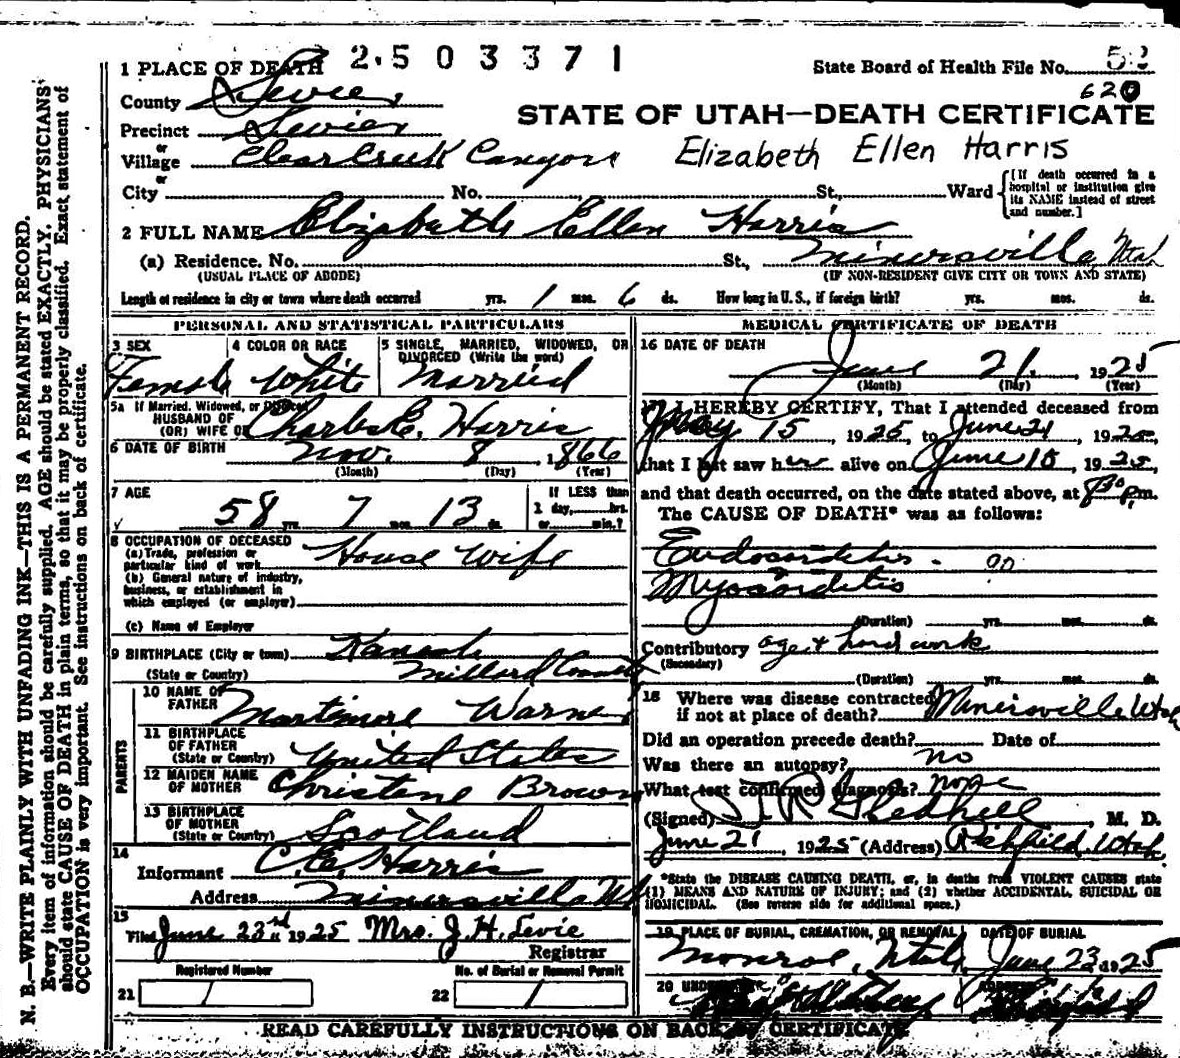 2.503371
1 PLACE OF DEATH
State Board of Health File No. 52
620
County Sevier
STATE OF UTAH—DEATH CERTIFICATE
Precinct Sevier
or
Village Clear Creek Canyon Elizabeth Ellen Harris
or
City No. St., Ward
[If death occurred in a hospital or institution give its NAME instead of street and number.]
2 FULL NAME Elizabeth Ellen Harris
(a) Residence. No. St., Minersville, Utah
(USUAL PLACE OF ABODE) (IF NON-RESIDENT GIVE CITY OR TOWN AND STATE)
Length of residence in city or town where death occurred yrs. 1 mos. 6 ds. How long in U.S., if foreign birth? yrs. mos. ds.
PERSONAL AND STATISTICAL PARTICULARS
3 SEX
Female
4 COLOR OR RACE
White
5 SINGLE, MARRIED, WIDOWED, OR DIVORCED (Write the word)
Married
5a If Married, Widowed, or Divorced
HUSBAND OF
(OR) WIFE OF Charles E. Harris
6 DATE OF BIRTH Nov. 8, 1866
(Month) (Day) (Year)
7 AGE
58 yrs. 7 mos. 13 ds.
If LESS than
1 day, hrs.
or min.?
8 OCCUPATION OF DECEASED
(a) Trade, profession or
particular kind of work House Wife
(b) General nature of industry,
business, or establishment in
which employed (or employer)
(c) Name of Employer
9 BIRTHPLACE (City or town)
(State or Country) Millard County
PARENTS
10 NAME OF
FATHER Mortimore Warner
11 BIRTHPLACE
OF FATHER
(State or Country) United States
12 MAIDEN NAME
OF MOTHER Christene Brown
13 BIRTHPLACE
OF MOTHER
(State or Country) Scotland
14
Informant C. E. Harris
Address Minersville Ut
15
Filed June 23rd 1925 Mrs. J. H. Levie
Registrar
Registered Number
21 1
No. of Burial or Removal Permit
22 1
MEDICAL CERTIFICATE OF DEATH
16 DATE OF DEATH
June 21, 1925
(Month) (Day) (Year)
17 I HEREBY CERTIFY, That I attended deceased from
May 15, 1925, to June 21, 1925,
that I last saw her alive on June 15, 1925,
and that death occurred, on the date stated above, at 830 p.m.
The CAUSE OF DEATH* was as follows:
Endocarditis. 90
Myocarditis
(Duration) yrs. mos. ds.
Contributory age & hard work
(Secondary)
(Duration) yrs. mos. ds.
18 Where was disease contracted
if not at place of death? Minersville Utah
Did an operation precede death? Date of
Was there an autopsy? no
What test confirmed diagnosis? none
(Signed) J R Gledhill, M. D.
June 21, 1925 (Address) Richfield. Utah.
*State the DISEASE CAUSING DEATH, or, in deaths from VIOLENT CAUSES state
(1) MEANS AND NATURE OF INJURY; and (2) whether ACCIDENTAL, SUICIDAL OR
HOMICIDAL. (See reverse side for additional space.)
19 PLACE OF BURIAL, CREMATION, OR REMOVAL DATE OF BURIAL
Monroe, Utah, June 23, 1925
20 UNDERTAKER ADDRESS
READ CAREFULLY INSTRUCTIONS ON BACK OF CERTIFICATE
N. B.—WRITE PLAINLY WITH UNFADING INK—THIS IS A PERMANENT RECORD.
Every item of information should be carefully supplied. AGE should be stated EXACTLY. PHYSICIANS
should state CAUSE OF DEATH in plain terms, so that it may be properly classified. Exact statement of
OCCUPATION is very important. See instructions on back of certificate.